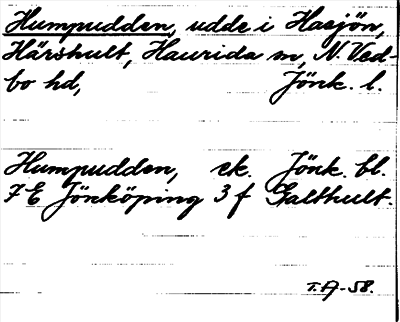 Humpudden, udde i Hasjön,
Härshult, Haurida sn, N. Ved-
bo hd, Jönk. l.
Humpudden, ek. Jönk. bl.
7E Jönköping 3 f Galthult.
T.A-58.